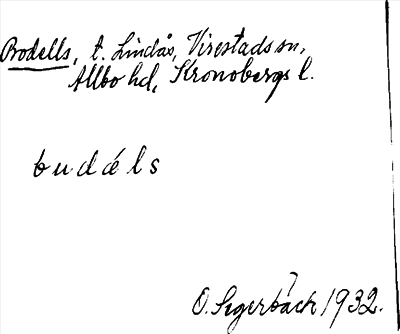 Brodells, t. Lindås, Virestads sn,
Allbo hd, Kronobergs l.
budéls
O. Segerbäck 1932.